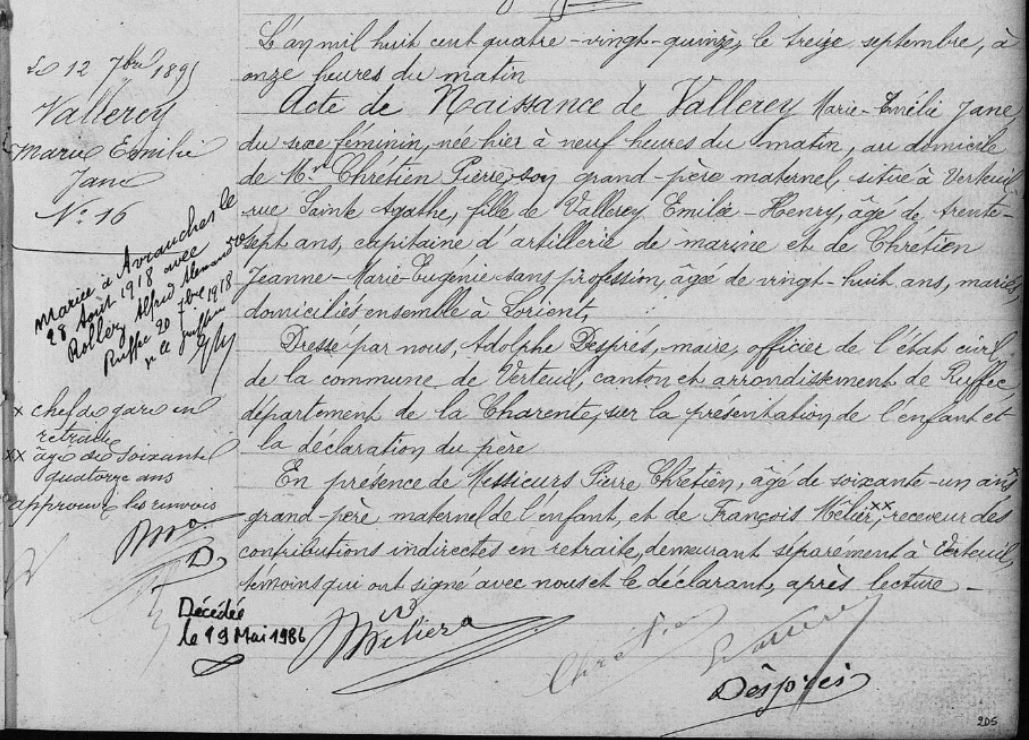 Le 12 7bre 1895
Vallerey
Marie Emilie
Jane
N° 16
mariée à Avranches le
28 Août 1918 avec
Roller Alfred Alexandre
Ruffec 20 7bre 1918
x chef de gare en
retraite
xx âgé de soixante
quatorze ans
approuvé les renvois
D
Décédée
le 19 Mai 1986
L'an mil huit cent quatre-vingt-quinze, le treize septembre, à
onze heures du matin
Acte de Naissance de Vallerey Marie-Emélie Jane
du sexe féminin, née hier à neuf heures du matin, au domicile
de Mr Chrétien Pierre, son grand-père maternel, situé à Verteuil
rue Sainte Agathe, fille de Vallerey Emile-Henry, âgé de trente-
sept ans, capitaine d'artillerie de marine et de Chrétien
Jeanne-Marie-Eugénie sans profession, âgée de vingt-huit ans, mariés,
domiciliés ensemble à Lorient,
Dressé par nous, Adolphe Després, maire, officier de l'état civil,
de la commune de Verteuil, canton et arrondissement de Ruffec
département de la Charente, sur la présentation de l'enfant et
la déclaration du père
En présence de Messieurs Pierre Chrétien, âgé de soixante-un ans x
grand-père maternel de l'enfant, et de François Mêlier, xx receveur des
contributions indirectes en retraite, demeurant séparément à Verteuil,
témoins qui ont signé avec nous et le déclarant, après lecture -
Vallerey
Després
205